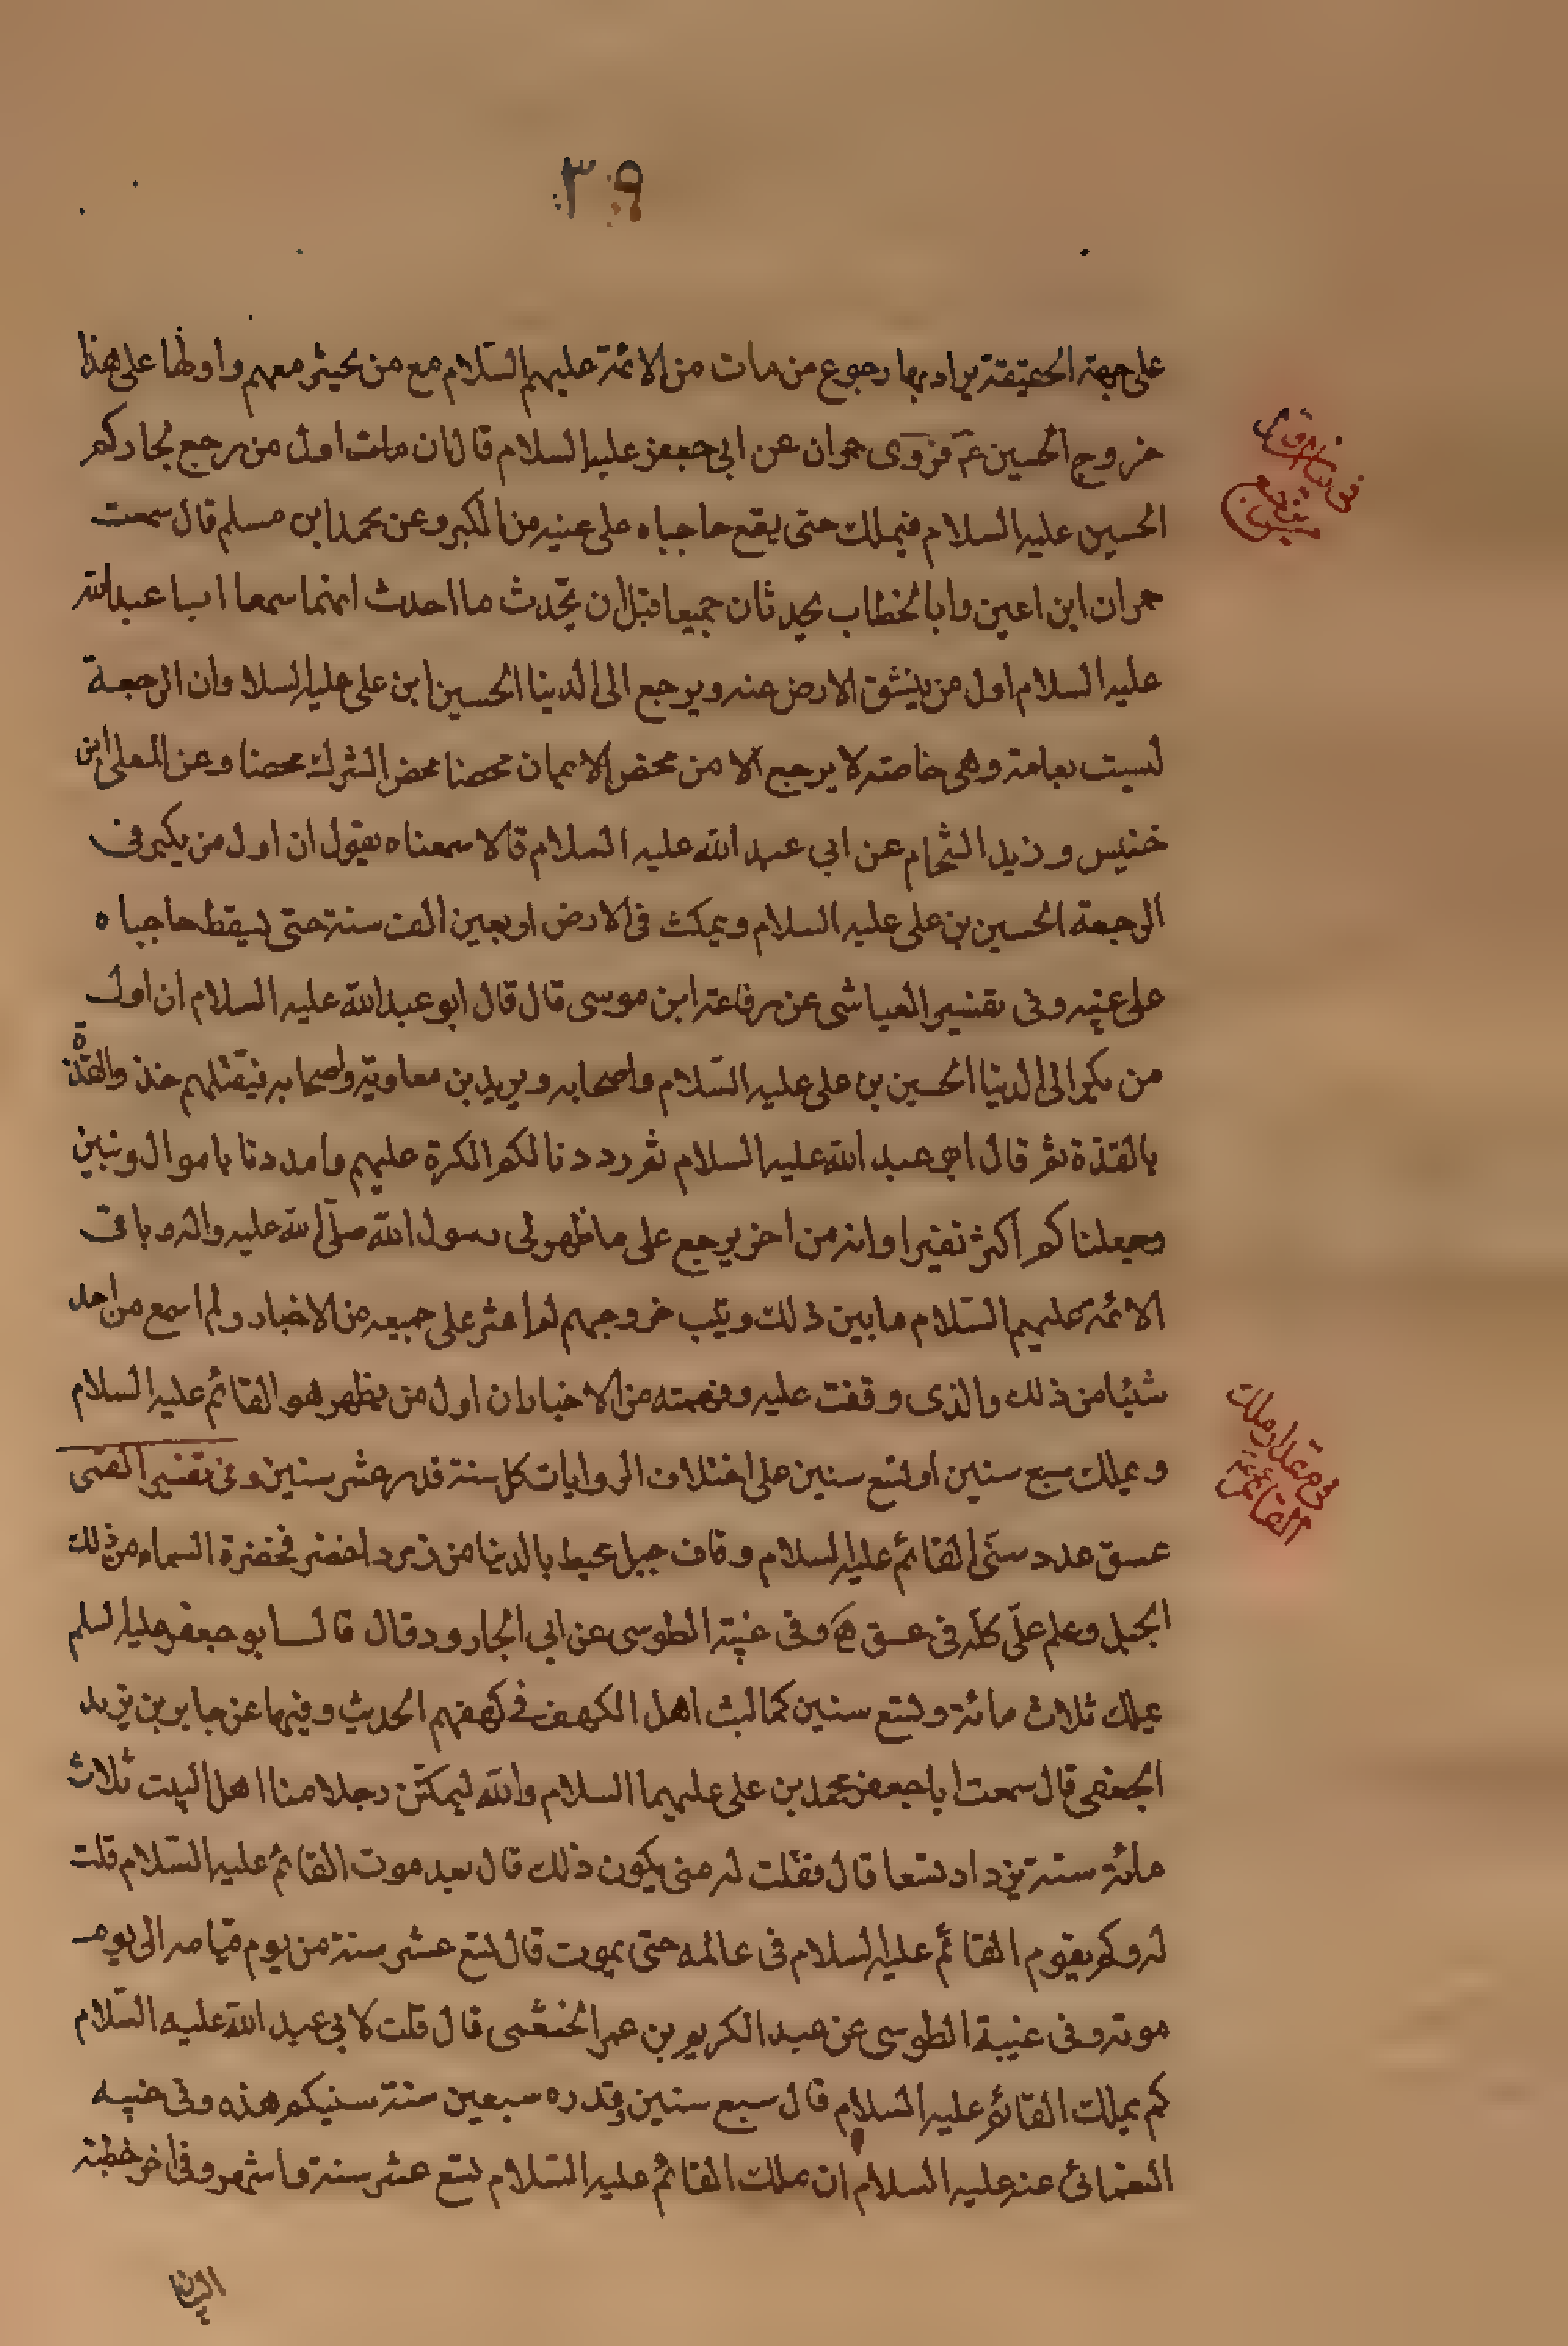 ٣٩
على جهة الحقيقة يراد بها رجوع من مات من الائمة عليهم السّلام مع من يحيثر معهم واولها على هذا
خروج الحسين عم فروى حمران عن ابي جعفر عليه السلام قال ان مات اول من يرجع لجاركم
الحسين عليه السلام فيملك حتى يقع حاجباه على عينيه من الكبر وعن محمد ابن مسلم قال سمعت
حمران ابن اعين وابا الخطاب يحدثان جميعا قبل ان يحدث ما احدث انهما سمعا ابا عبدالله
عليه السلام اول من ينشق الارض عنه ويرجع الى الدينا الحسين ابن على عليه السلا وان الرجعة
ليست بعامة وهى خاصته لا يرجع الا من محض الايمان محضا محض الشرك محضا وعن المعلى ابن
خنيس وزيد الشحام عن ابي عبد الله عليه السلام قالا سمعناه يقول ان اول من يكر فى
الرجعة الحسين بن على عليه السلام ويمكث فى الارض اربعين الف سنة حتى يسقط حاجباه
على عينيه وفى تفسير العياشى عن رفاعة ابن موسى قال قال ابو عبدالله عليه السلام ان اول
من يكر الى الدنيا الحسين بن على عليه السّلام واصحابه ويزيد بن معاوية واصحابه فيقتلهم حذو القذة
بالقذة ثم قال ابي عبد الله عليه السلام ثم رددنا لكم الكرة عليهم وامددنا باموال وبنين
وجعلناكم اكثر نفيرا وانه من اخر يرجع على ما ظهر لى رسول الله صلّى الله عليه واله وباقى
الائمة عليهم السّلام ما بين ذلك وتب خروجهم لم اعثر على جميعه من الاخبار ولم اسمع من احد
شيئا من ذلك والذى وقفت عليه وفهمته من الاخبار ان اول من يظهر هو القائم عليه السلام
ويملك سبع سنين او تسع سنين على اختلاف الروايات كل سنة قدر عشر سنين وفى تفسير القمى
عسق عدد سنّى القائم عليه السلام وقاف جبل محيط بالدنيا من زمرد اخضر فخضرة السماء من ذلك
الجبل وعلم علّى كله فى عسق وفى غيبة الطوسى عن ابى الجارود قال قال ابو جعفر عليه السلم
يملك ثلاث مائة وتسع سنين كما لبث اهل الكهف فى كهفهم الحديث وفيها عن جابر بن يزيد
الجعفى قال سمعت ابا جعفر محمد بن على عليهما السلام والله ليمكثن رجلا منا اهل البيت ثلاث
مائة سنة يزداد تسعا قال فقلت له متى يكون ذلك قال بعد موت القائم عليه السّلام قلت
له وكم يقوم القائم عليه السلام فى عالمه حتى يموت قال تسع عشر سنة من يوم قيامه الى يوم
موته وفى غيبة الطوسى عن عبد الكريم بن عمر الخثعمى قال قلت لابى عبد الله عليه السّلام
كم يملك القائم عليه السلام قال سبع سنين وقدره سبعين سنة سنيكم هذه وفى غيبه
النعمانى عنه عليه السلام ان يملك القائم عليه السّلام تسع عشر سنة واشهر وفى اخر خطبته
فى مقدار ملك
القائم عم